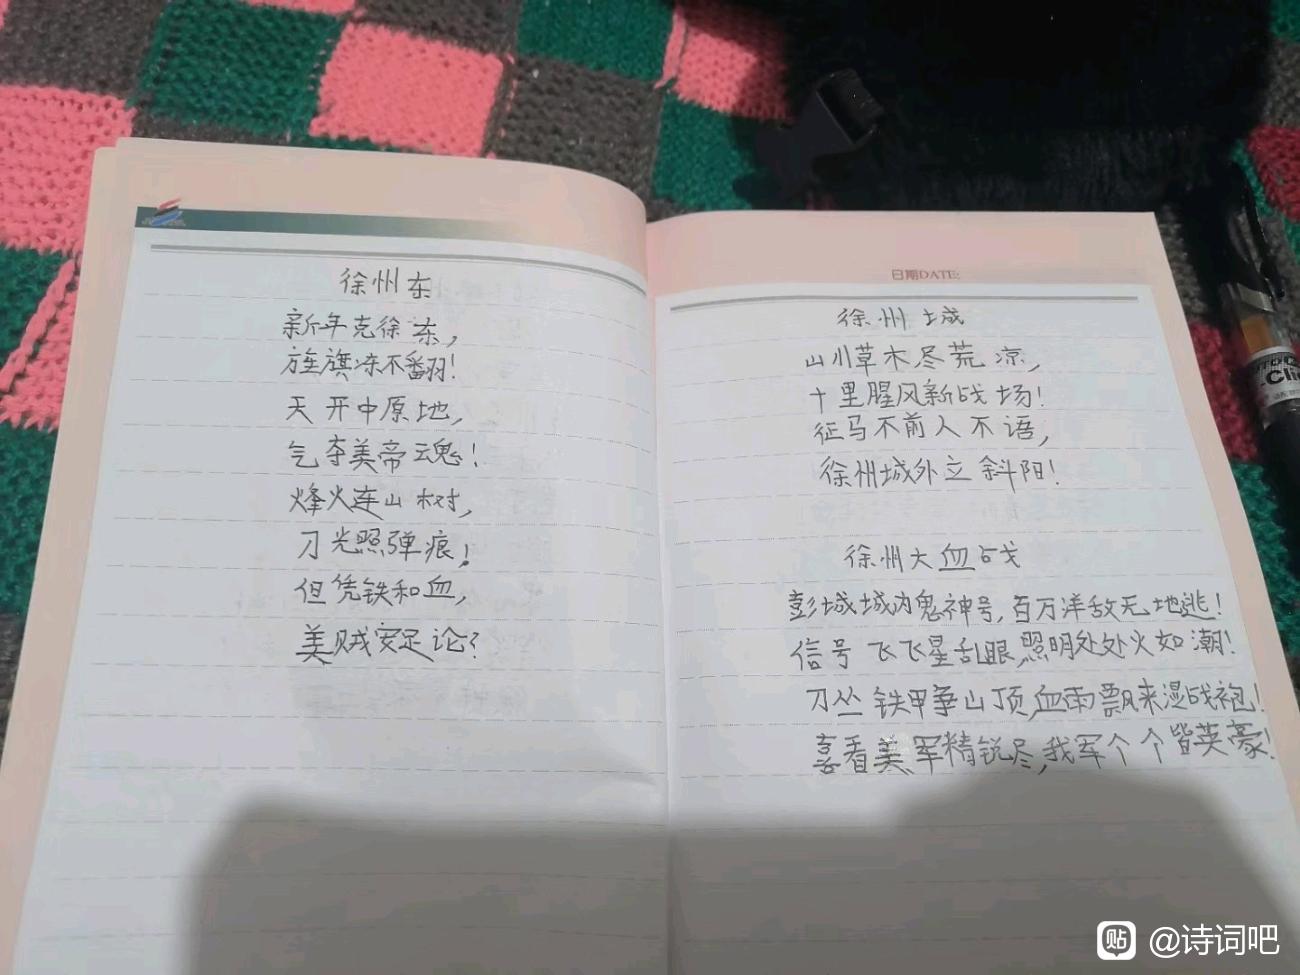 徐州东
新年克徐东，
旌旗冻不翻！
天开中原地，
气夺美帝魂！
烽火连山树，
刀光照弹痕！
但凭铁和血，
美贼安足论？
日期DATE:
徐州城
山川草木尽荒凉，
十里腥风新战场！
征马不前人不语，
徐州城外立斜阳！
徐州大血战
彭城城内鬼神号，百万洋敌无地逃！
信号飞飞星乱眼，照明处处火如潮！
刀丛铁甲争山顶，血雨飘来湿战袍！
喜看美军精锐尽，我军个个皆英豪！
贴 @诗词吧